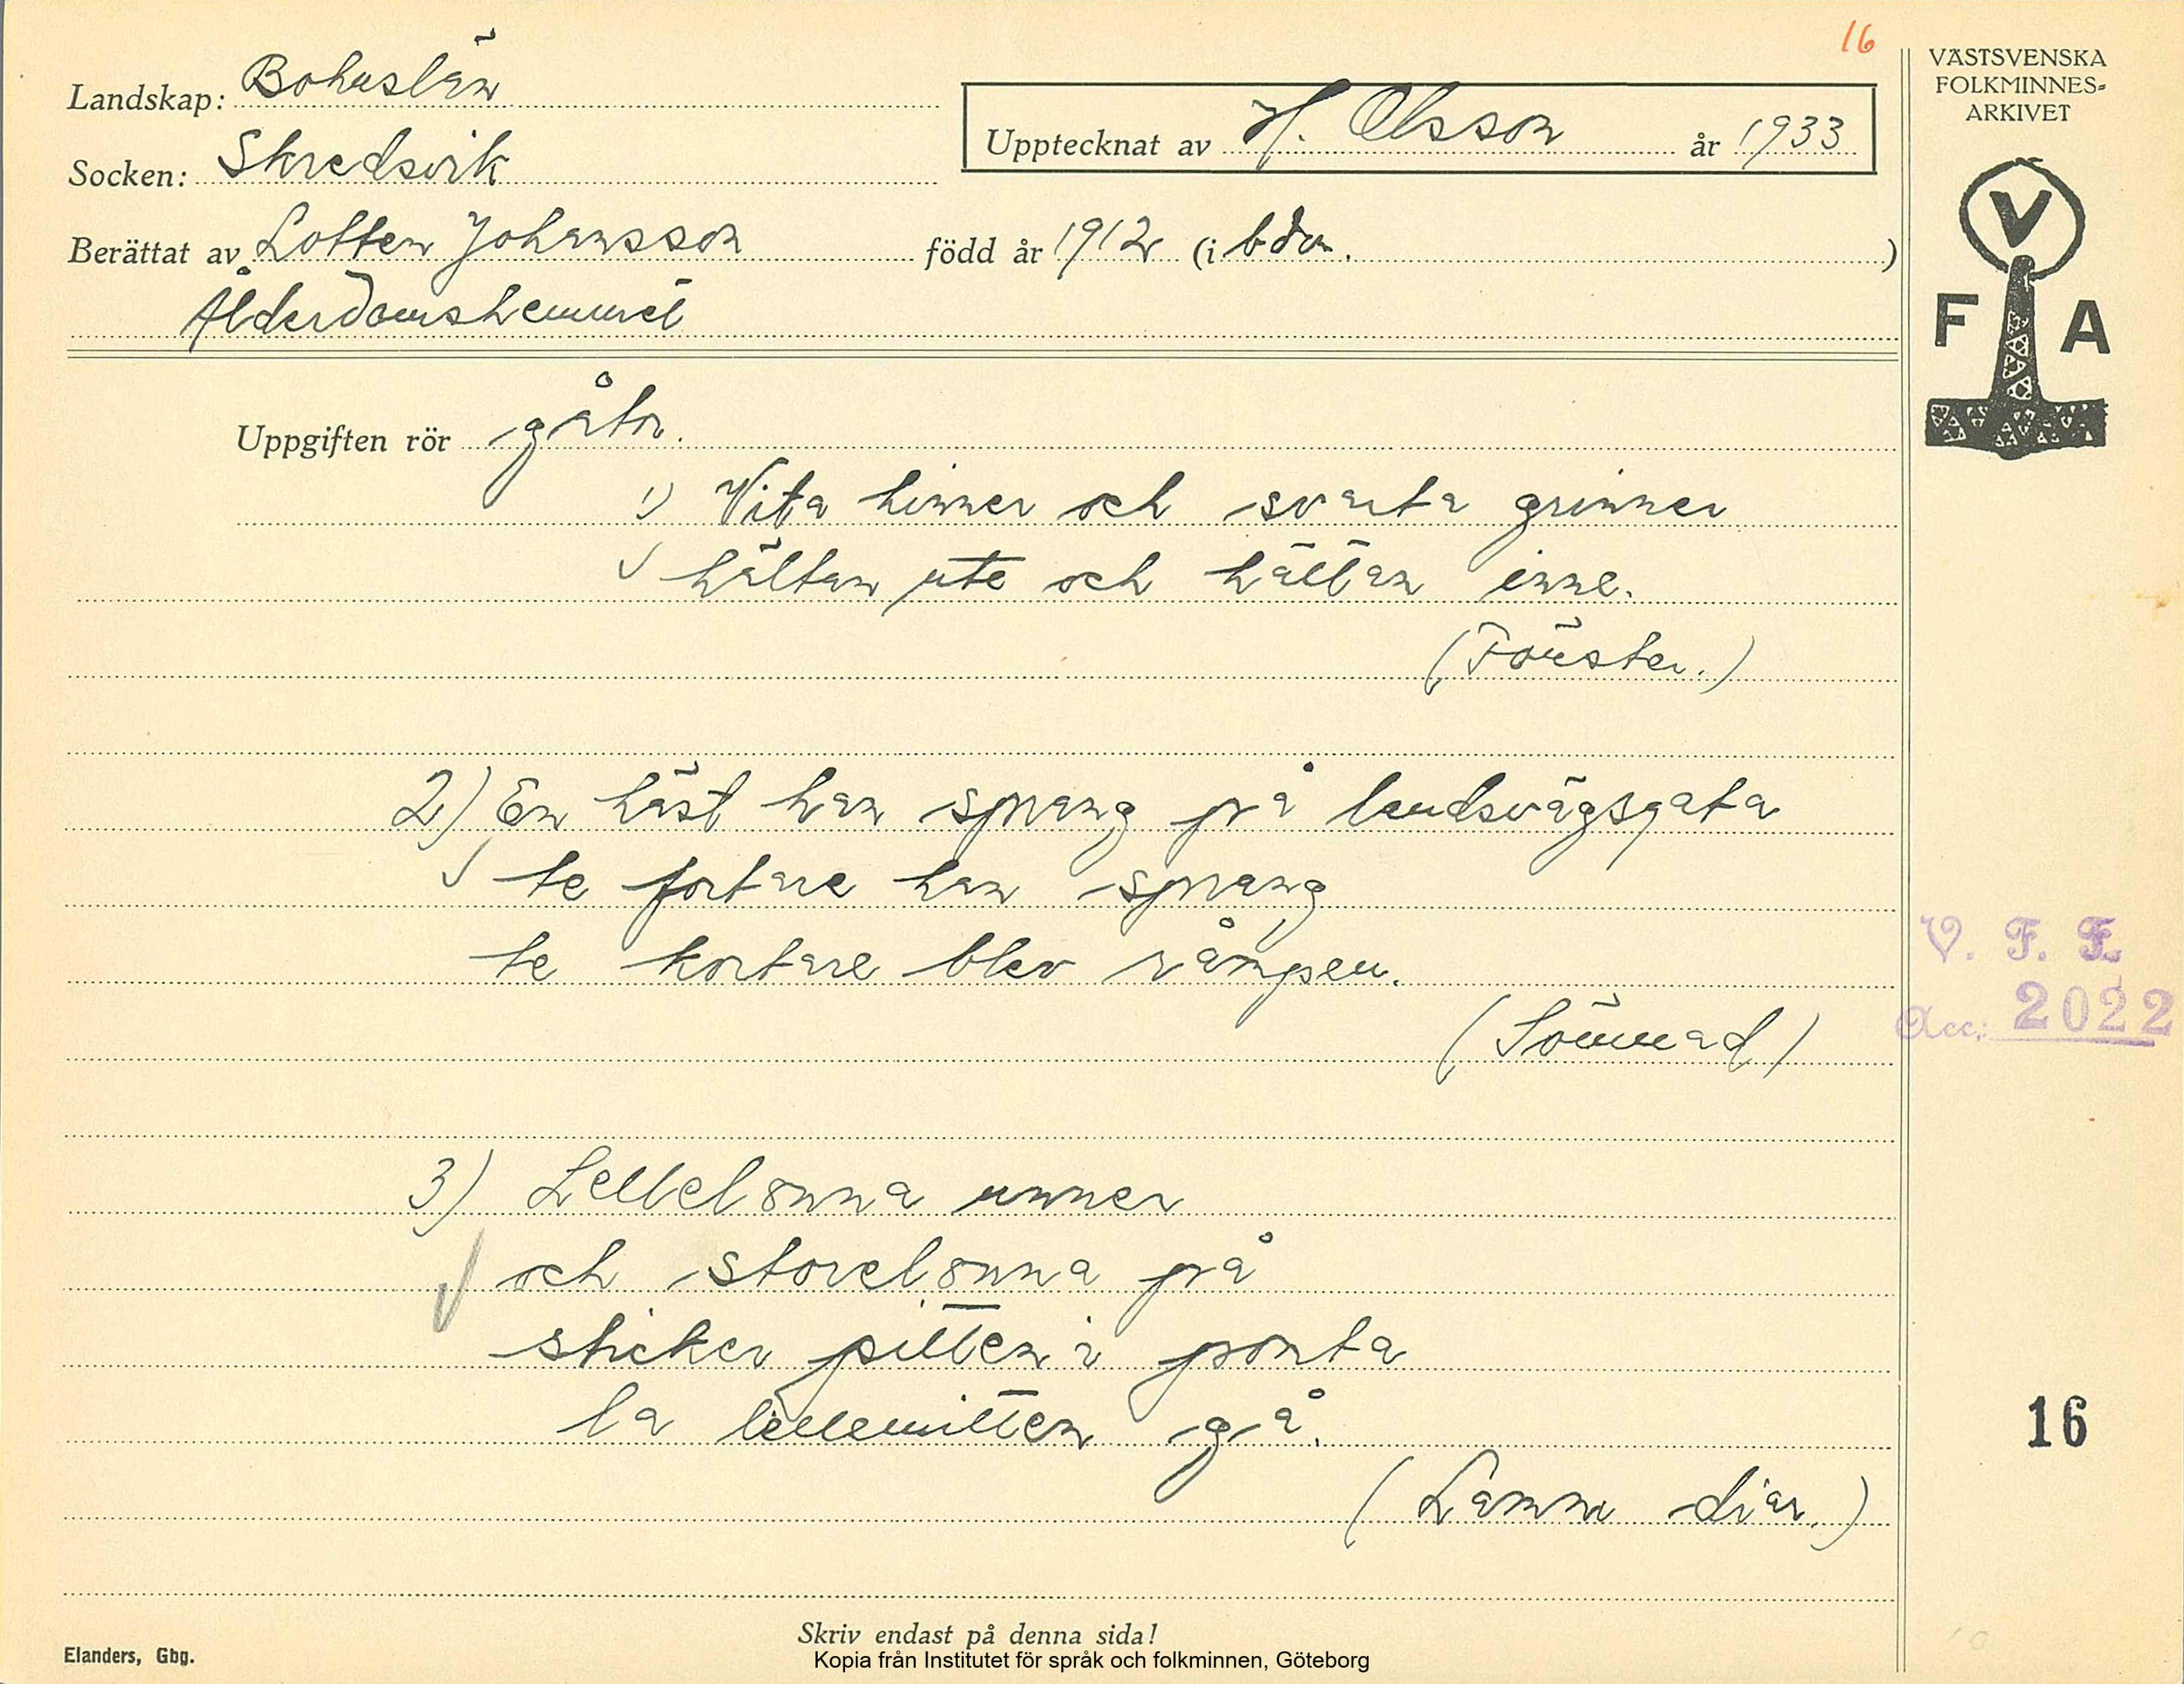 16
Landskap: Bohuslän
VÄSTSVENSKA
FOLKMINNES-
ARKIVET
Upptecknat av H. Olsson år 1933
Socken: Skredsvik
Berättat av Lotten Johansson född år 1912 (i bdn.)
Ålderdomshemmet
V
F A
Uppgiften rör gåtor.
1) Vita hinner och svarta grinner
hälften ute och hälften inne.
(Fönster.)
2) En häst han sprang på landsvägsgata
te fortare han sprang
te kortare blev rumpen.
V. F. F.
Acc: 2022
(Sömnad)
3) Lellelonna unner
och storelonna på
sticker pitten i ponta
la lellemitten gå.
16
(Lamm diar.)
Skriv endast på denna sida!
Elanders, Gbg.
Kopia från Institutet för språk och folkminnen, Göteborg